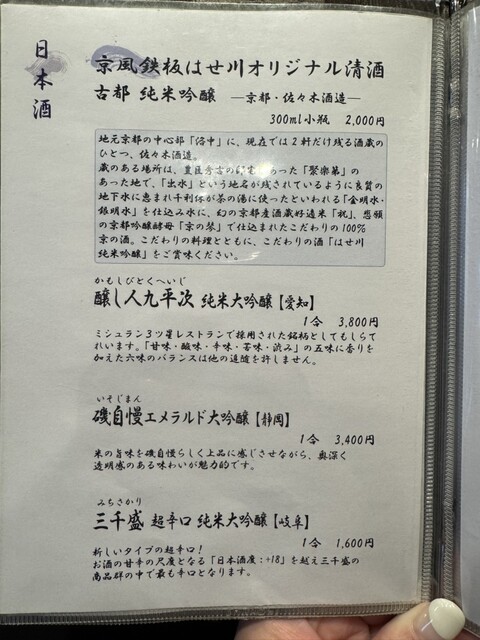 日本酒
京風鉄板はせ川オリジナル清酒
古都 純米吟醸 ―京都・佐々木酒造―
300ml小瓶 2,000円
地元京都の中心部「洛中」に、現在では2軒だけ残る酒蔵の
ひとつ、佐々木酒造。
蔵のある場所は、豊臣秀吉の邸宅であった「聚楽第」の
あった地で、「出水」という地名が残されているように良質の
地下水に恵まれ千利休が茶の湯に使ったといわれる「金明水・
銀明水」を仕込み水に、幻の京都産酒蔵好適米「祝」、想領
の京都吟醸酵母「京の琴」で仕込まれたこだわりの100%
京の酒。こだわりの料理とともに、こだわりの酒「はせ川
純米吟醸」をご賞味ください。
かもしびとくへいじ
醸し人九平次 純米大吟醸【愛知】
1合 3,800円
ミシュラン3ツ星レストランで採用された銘柄としてもしらて
れいます。「甘味・酸味・辛味・苦味・渋み」の五味に香りを
加えた六味のバランスは他の追随を許しません。
いそじまん
磯自慢エメラルド大吟醸【静岡】
1合 3,400円
米の旨味を磯自慢らしく上品に感じさせながら、奥深く
透明感のある味わいが魅力的です。
みちさかり
三千盛 超辛口 純米大吟醸【岐阜】
1合 1,600円
新しいタイプの超辛口!
お酒の甘辛の尺度となる「日本酒度:+18」を越え三千盛の
商品群の中で最も辛口となります。